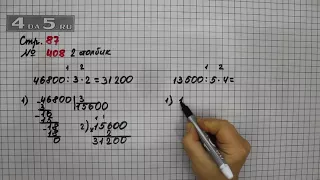 4 DA 5 .RU
Стр. 87
№ 408 2 столбик
1 2
46800 : 3 · 2 = 31200
1 2
13500 : 5 · 4 =
1) 46800 | 3
3 15600
18
15
18 2) 15600
18 2
0 31200
1)